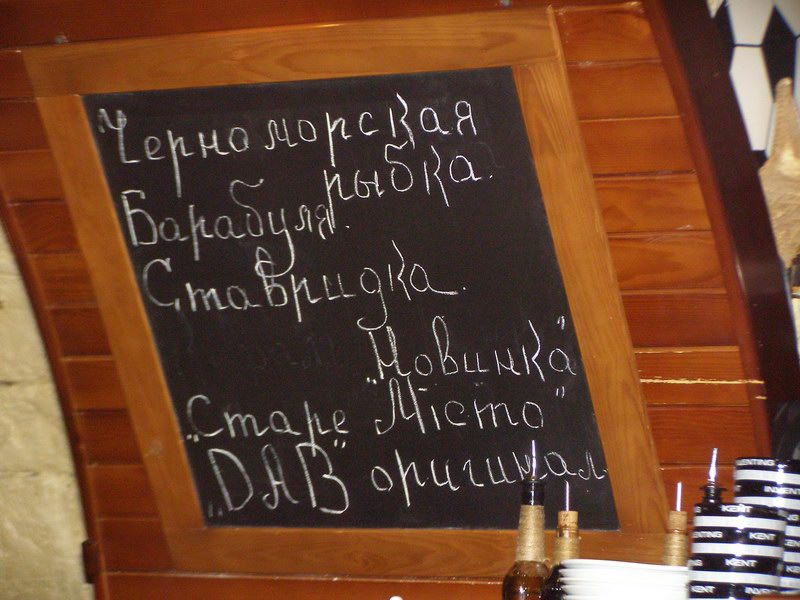 Черноморская
рыбка.
Барабуля.
Ставридка.
„Новинка"
„Старе Місто"
„DAB" оригинал.
KENT
KENT
KENT